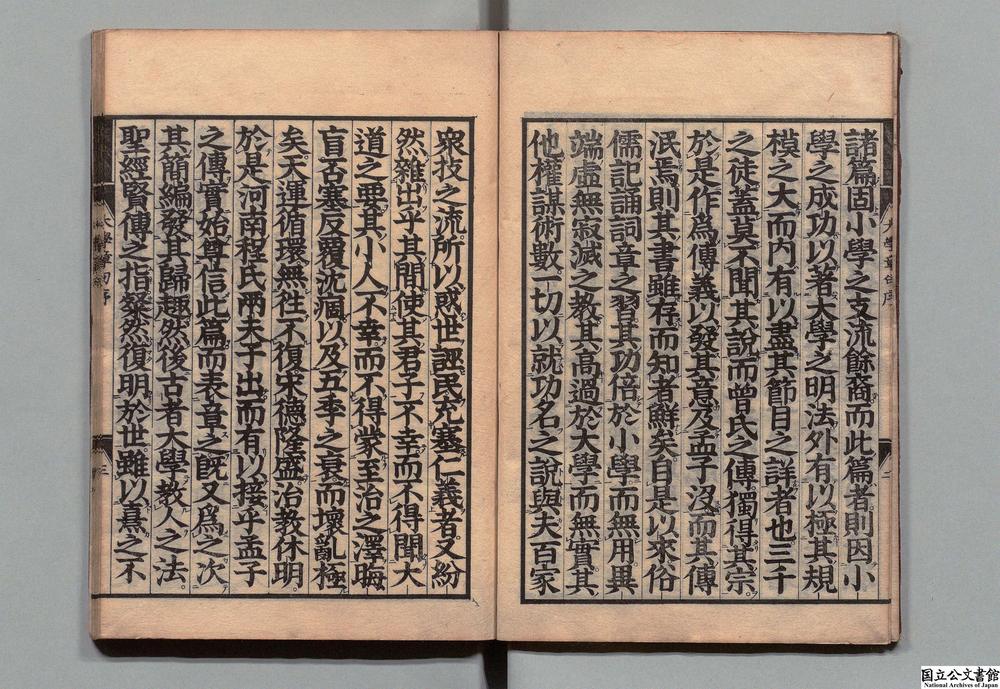 諸篇固小學之支流餘裔而此篇者則因小
學之成功以著大學之明法外有以極其規
模之大而內有以盡其節目之詳者也三千
之徒蓋莫不聞其說而曾氏之傳獨得其宗
於是作爲傳義以發其意及孟子沒而其傳
泯焉則其書雖存而知者鮮矣自是以來俗
儒記誦詞章之習其功倍於小學而無用異
端虛無寂滅之教其高過於大學而無實其
他權謀術數一切以就功名之說與夫百家
大學章句序
二
衆技之流所以惑世誣民充塞仁義者又紛
然雜出乎其間使其君子不幸而不得聞大
道之要其小人不幸而不得蒙至治之澤晦
盲否塞反覆沈痼以及五季之衰而壞亂極
矣天運循環無往不復宋德隆盛治教休明
於是河南程氏兩夫子出而有以接乎孟子
之傳實始尊信此篇而表章之旣又爲之次
其簡編發其歸趣然後古者大學教人之法
聖經賢傳之指粲然復明於世雖以熹之不
大學章句序
三
国立公文書館
National Archives of Japan